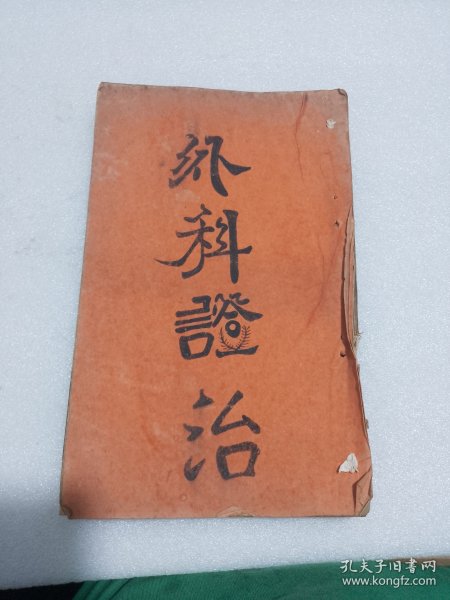 外科證治
孔夫子旧书网
www.kongfz.com